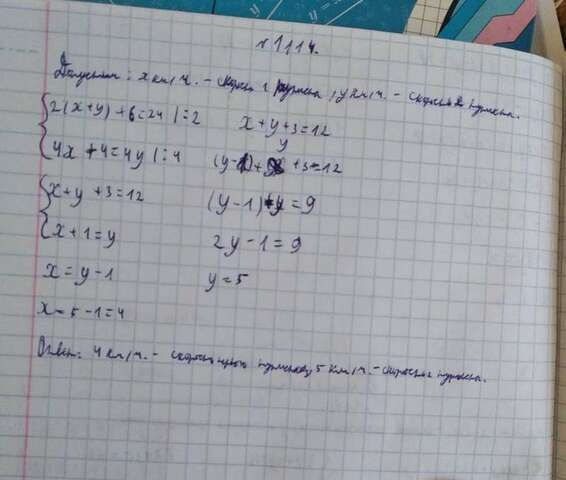 № 1114.
Допустим: x км/ч. - скорость 1 туриста, y км/ч. - скорость 2 туриста.
2(x+y)+6=24 |:2
4x+4=4y |:4
x+y+3=12
x+1=y
x=y-1
x=5-1=4
x+y+3=12
(y-1)+y+3=12
(y-1)+y=9
2y-1=9
y=5
Ответ: 4 км/ч. - скорость туриста, 5 км/ч. - скорость 2 туриста.